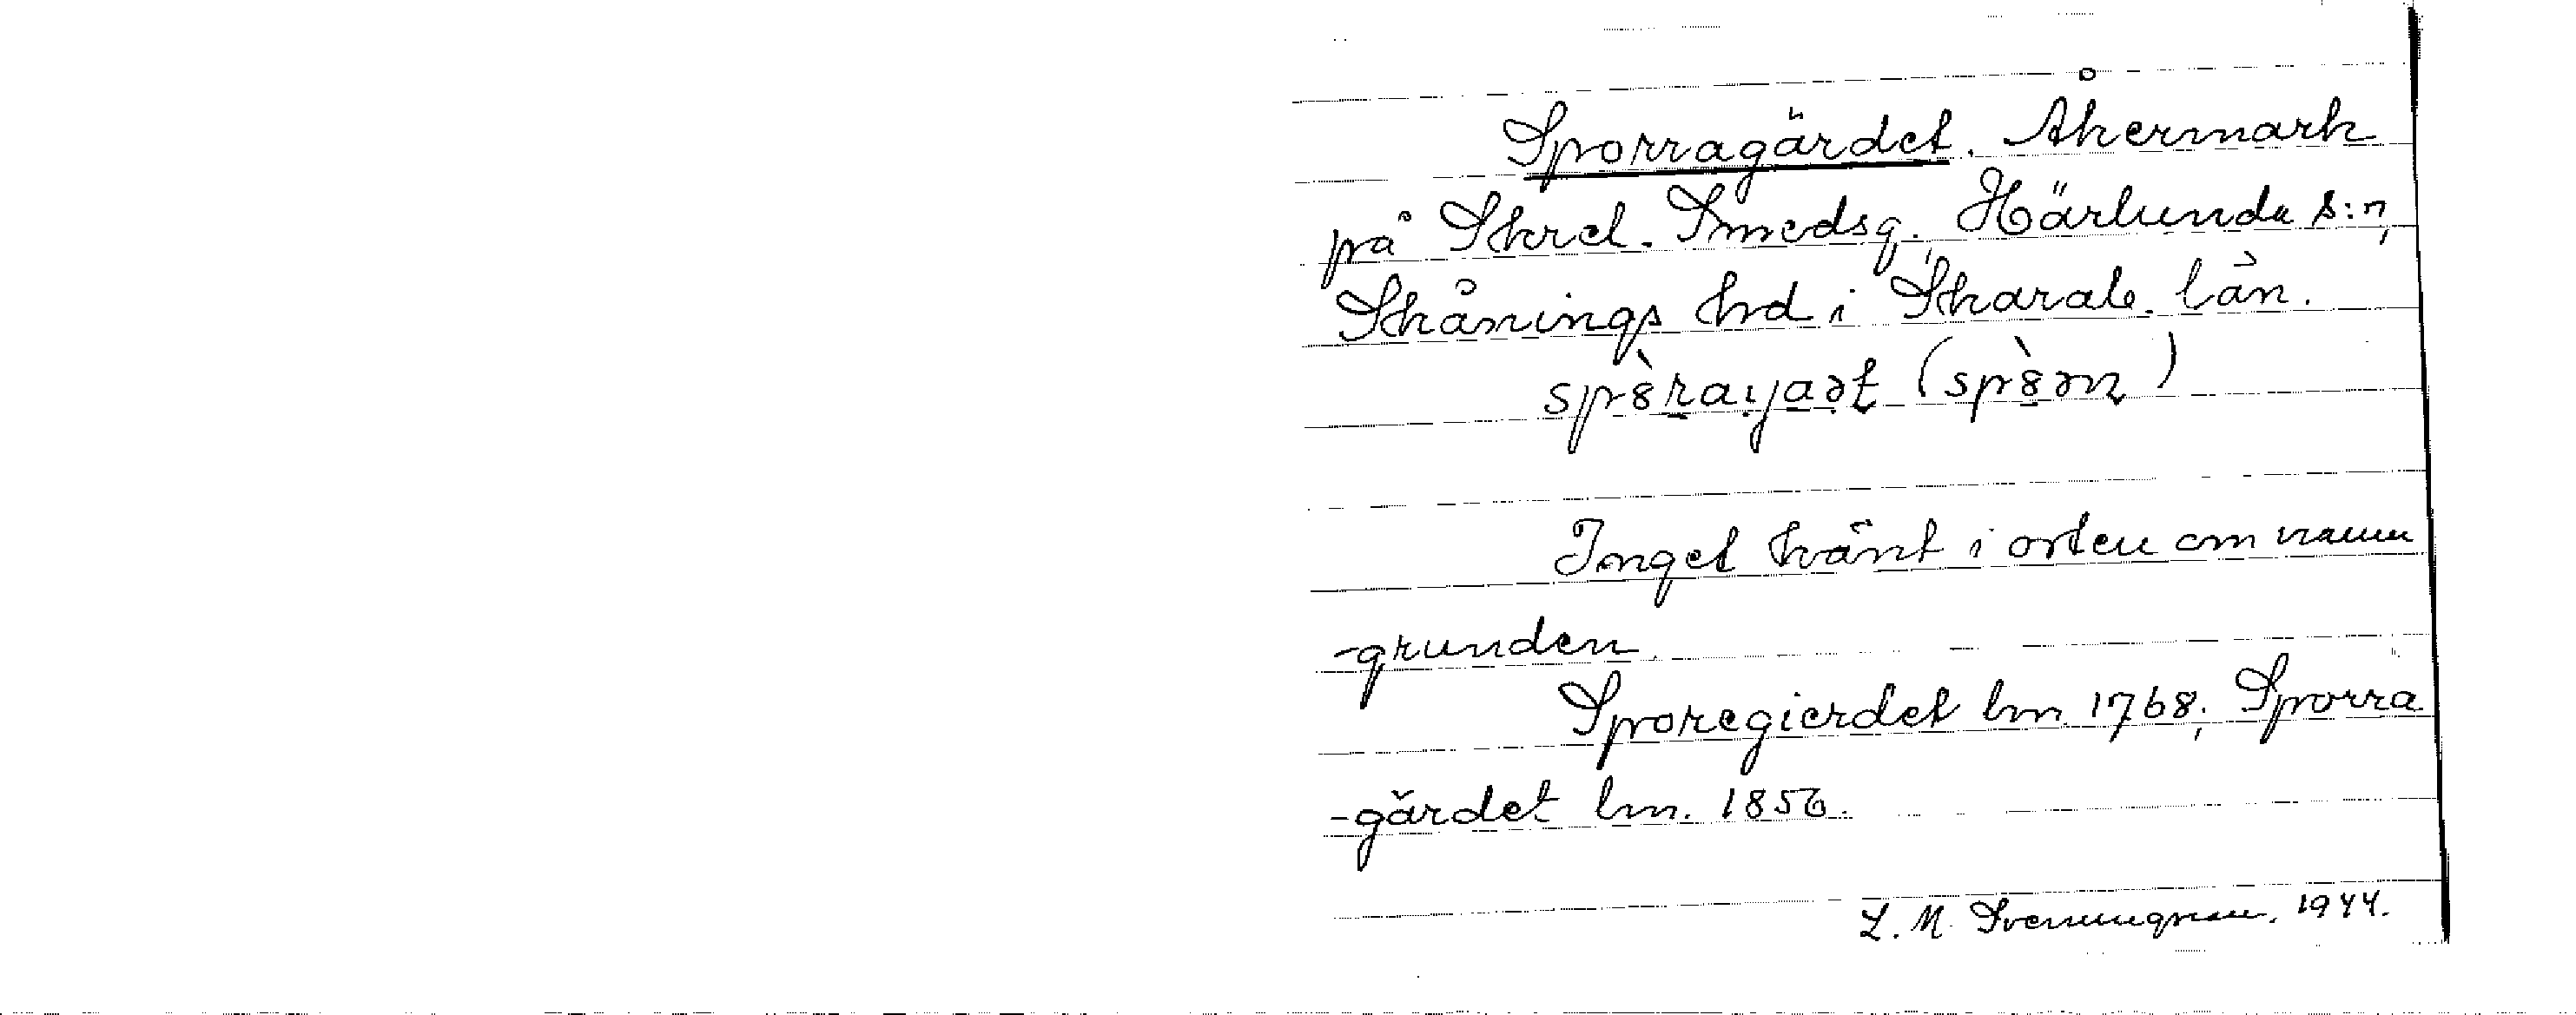 Sporragärdet. Åkermark
på Skrel. Smedsg. Härlunda s:n,
Skånings hd i Skarab. län.
Inget känt i orten om namn
-grunden.
Sporegierdet lm. 1768; Sporra
-gärdet lm. 1856.
L. M. Svenungsson. 1944.